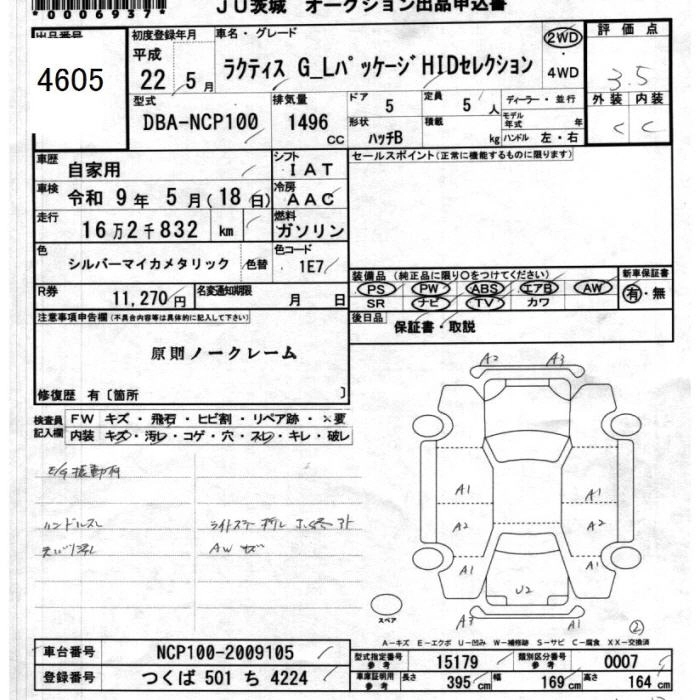 *0006937*
JU茨城 オークション出品申込書
出品番号 4605
初度登録年月 平成 22 5月
車名・グレード ラクティス G_Lパッケージ HIDセレクション
2WD・4WD
評価点 3.5
外装 内装
C C
型式 DBA-NCP100
排気量 1496 cc
ドア 5
定員 5人
ディーラー・並行
形状 ハッチB
積載 kg
モデル年式 年
ハンドル 左・右
車歴 自家用
シフト IAT
セールスポイント(正常に機能するものに限ります)
車検 令和 9年 5月(18日)
冷房 AAC
走行 16万2千832 km
燃料 ガソリン
色 シルバーマイカメタリック 色替
色コード 1E7
装備品(純正品に限り○をつけてください)
新車保証書
PS PW ABS エアB AW
有・無
SR ナビ TV カワ
R券 11,270円
名変通知期限 月 日
後日品 保証書・取説
注意事項申告欄(不具合内容等は具体的に記入して下さい)
原則ノークレーム
修復歴 有〔箇所 〕
検査員記入欄
FW キズ・飛石・ヒビ割・リペア跡・×要
内装 キズ・汚レ・コゲ・穴・スレ・キレ・破レ
E/G振動有
ハンドルスレ
ライトステー折レ
AW キズ
A2 A3
A1 A1
A2 A2
A1 A1
U2
A3 A1
スペア
②
A-キズ E-エクボ U-凹み W-補修跡 S-サビ C-腐食 XX-交換済
車台番号 NCP100-2009105
型式指定番号 参考 15179
類別区分番号 参考 0007
登録番号 つくば 501 ち 4224
車庫証明用 参考 長さ 395cm 幅 169cm 高さ 164cm